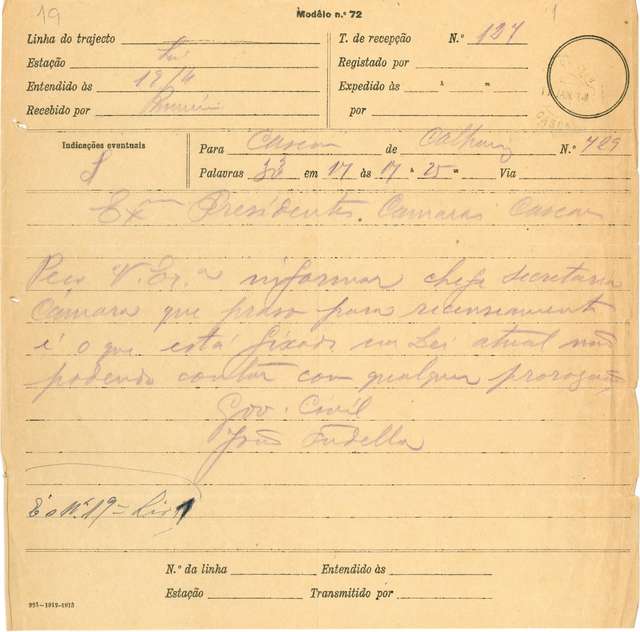 19
Modêlo n.º 72
Linha do trajecto
Estação
Entendido às 12/4
Recebido por
T. de recepção N.º 127
Registado por
Expedido às h m
por
Indicações eventuais
Para Cascaes de N.º 729
Palavras 33 em 17 às 17 h 25 m Via
Exm Presidente Camara Cascaes
Peço V. Ex.a informar chefe secretaria
Câmara que praso para recenseamento
é o que está fixado em Lei atual não
podendo contar com qualquer prorogação
Gov. Civil
João
E o Nº 19 = Liv 1
N.º da linha Entendido às
Estação Transmitido por
291-1912-1913